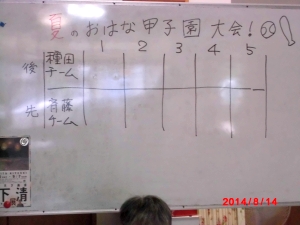 夏のおはな甲子園大会!!
1 2 3 4 5
後 種田チーム
先 斉藤チーム
下 清
2014/8/14